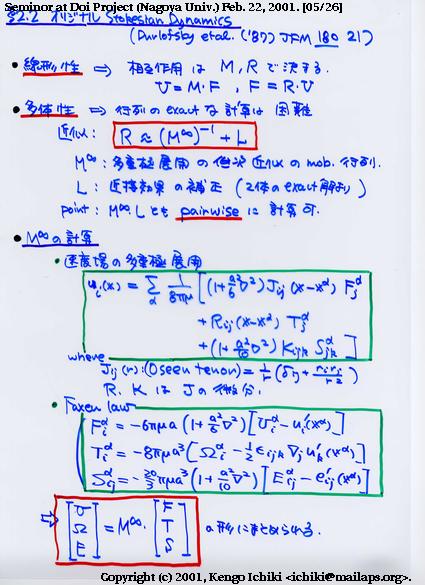 Seminar at Doi Project (Nagoya Univ.) Feb. 22, 2001. [05/26]
§2.2 オリジナル Stokesian Dynamics
(Durlofsky et al. ('87) JFM 180 21)
• 線形性 ⇒ 相互作用は M, R で決まる.
U = M·F , F = R·U
• 多体性 ⇒ 行列の exact な計算は 困難
近似: R ≈ (M^∞)^{-1} + L
M^∞: 多重極展開の低次近似の mob. 行列.
L : 近接効果の補正 (2体の exact 解より)
point : M^∞, L とも pairwise に計算可.
• M^∞ の計算
• 速度場の多重極展開
u_i(x) = Σ_α 1/8πμ [ (1+a²/6 ∇²) J_ij (x-x^α) F_j^α
+ R_ij (x-x^α) T_j^α
+ (1+a²/10 ∇²) K_ijk S_jk^α ]
where
J_ij (r) : (Oseen tensor) = 1/r (δ_ij + r_i r_j / r²)
R, K は J の微分.
• Faxen law
F_i^α = -6πμa (1+a²/6 ∇²) [ U_i^α - u_i'(x^α) ]
T_i^α = -8πμa³ [ Ω_i^α - 1/2 ε_ijk ∇_j u_k'(x^α) ]
S_ij^α = -20/3 πμa³ (1+a²/10 ∇²) [ E_ij^α - e_ij'(x^α) ]
⇒ [ U Ω E ] = M^∞ · [ F T S ] の形にまとめられる.
Copyright (c) 2001, Kengo Ichiki <ichiki@mailaps.org>.